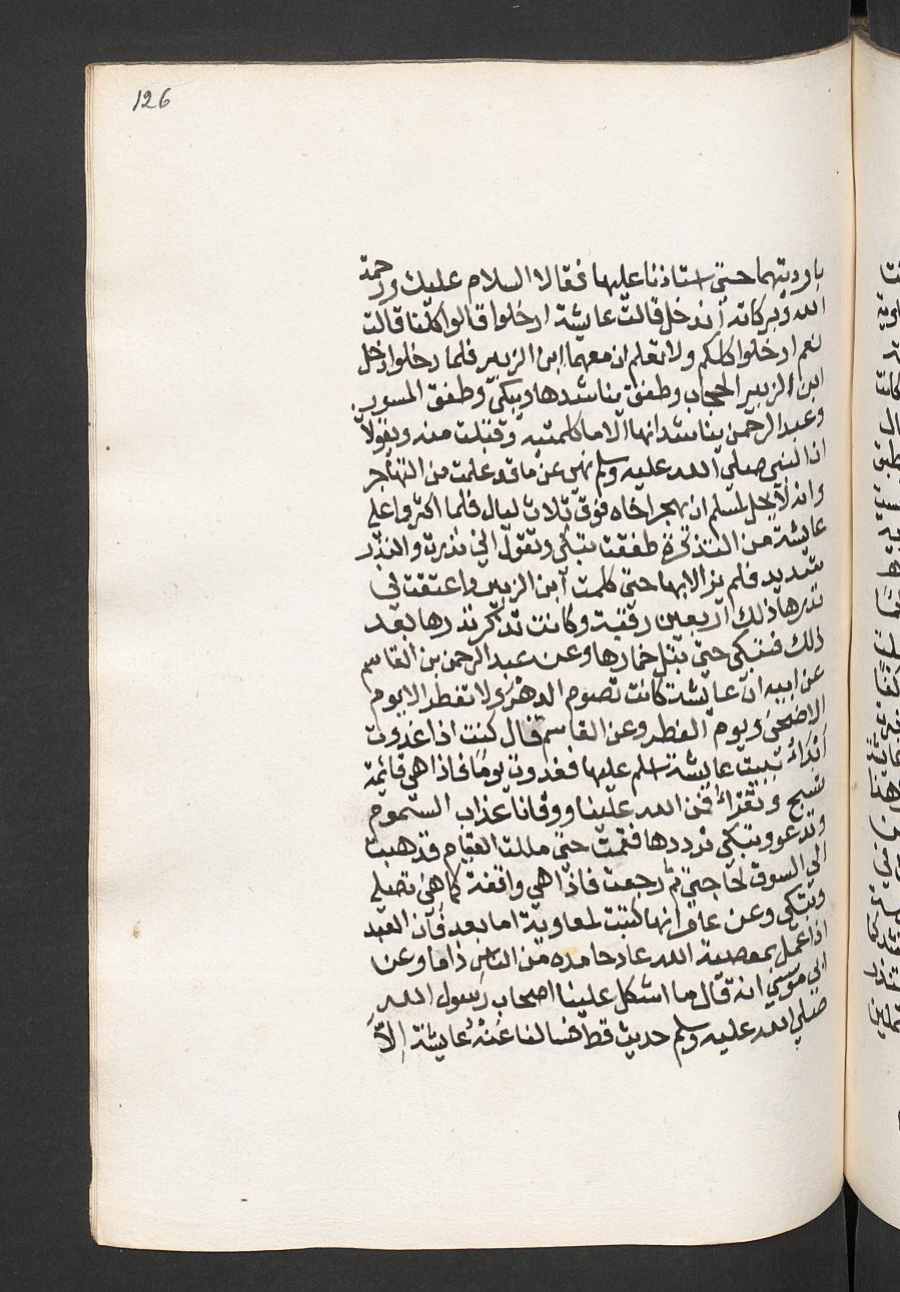 126
بارديتهما حتى استاذنا عليها فقالا السلام عليك ورحمة
الله وبركاته أندخل قالت عايشة ادخلوا قالوا كلنا قالت
نعم ادخلوا كلكم ولا تعلم ان معهما ابن الزبير فلما دخلوا دخل
ابن الزبير الحجاب وطفق يناشدها ويبكي وطفق المسور
وعبد الرحمن يناشدانها الا ما كلمتيه وقبلت منه ويقولا
ان النبي صلى الله عليه وسلم نهى عن ما قد علمت من التهاجر
وانه لا يحل لمسلم ان يهجر اخاه فوق ثلاث ليال فلما اكثروا على
عايشة من التذكرة طفقت تبكي وتقول اني نذرت والنذر
شديد فلم يزالا بها حتى كلمت ابن الزبير واعتقت في
نذرها ذلك اربعين رقبة وكانت تذكر نذرها بعد
ذلك فتبكي حتى تبتل خمارها وعن عبد الرحمن بن القاسم
عن ابيه ان عايشة كانت تصوم الدهر ولا تفطر الا يوم
الاضحى ويوم الفطر وعن القاسم قال كنت اذا غدوت
أبداء ببيت عايشة اسلم عليها فغدوت يوما فاذا هي قائمة
تسبح وتقراء فمن الله علينا ووقانا عذاب السموم
وتدعو وتبكي ترددها فقمت حتى مللت القيام فذهبت
الى السوق لحاجتي ثم رجعت فاذا هي واقفة كما هي تصلي
وتبكي وعن عامر انها كتبت لمعاوية اما بعد فان العبد
اذا عمل بمعصية الله عاد حامده من الناس ذاما وعن
ابي موسى انه قال ما اشكل علينا اصحاب رسول الله
صلى الله عليه وسلم حديث قط فسالنا عنه عايشة الا